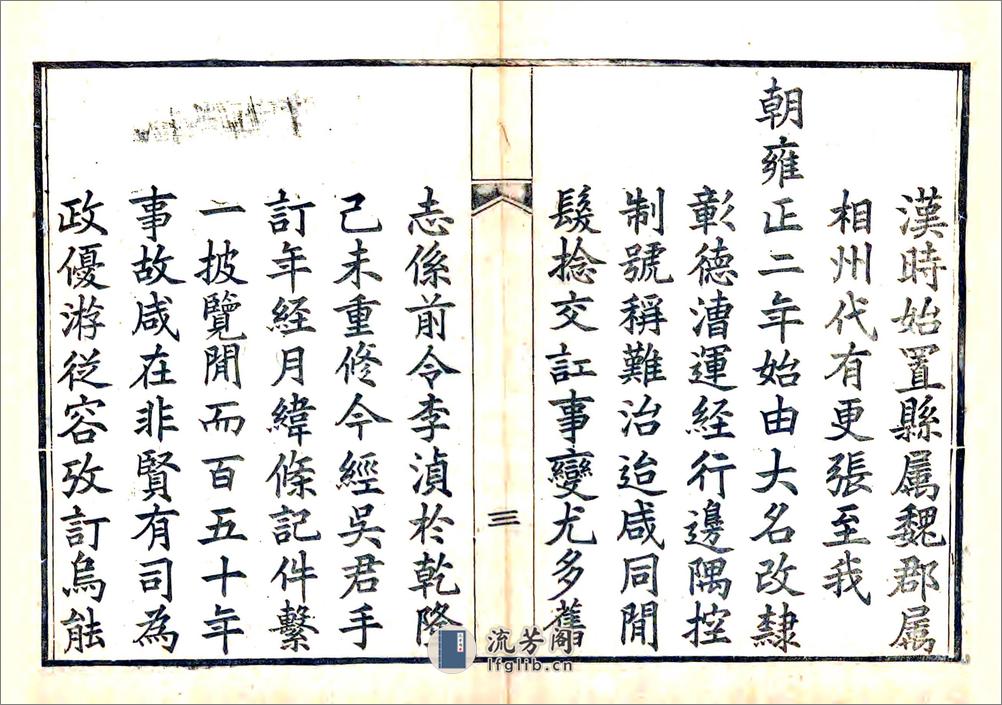 漢時始置縣属魏郡属
相州代有更張至我
朝雍正二年始由大名改隸
彰德漕運経行邊隅控
制號稱難治迨咸同閒
髮捻交訌事變尤多舊
三
志係前令李湞於乾隆
己未重修今經吳君手
訂年経月緯條記件繫
一披覽閒而百五十年
事故咸在非賢有司為
政優游従容攷訂烏能
流芳阁
lfglib.cn